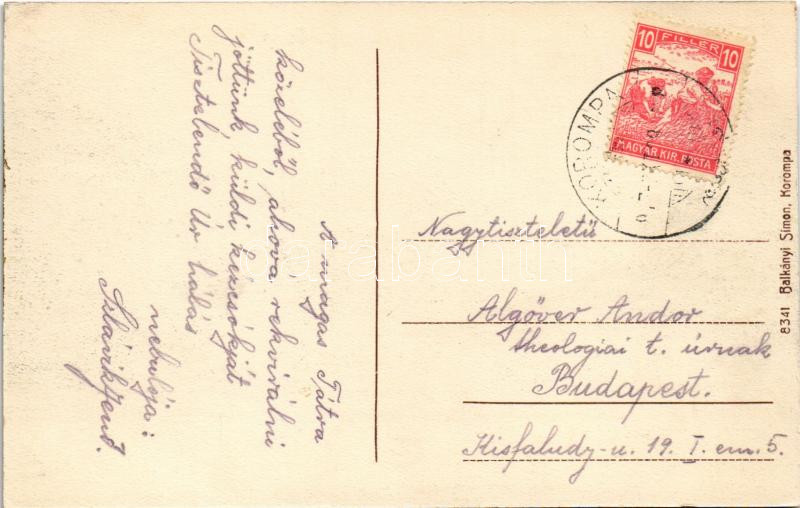 A magas Tátra
közeléből, ahova rekvirálni
jöttünk küldi kézcsókját
Tisztelendő Úr hálás
nebulója:
Szlávik Jenő.
10 FILLER 10
MAGYAR KIR. POSTA
KOROMPA
Nagytiszteletű
Algöver Andor
theologiai t. úrnak
Budapest.
Kisfaludy-u. 19. I. em. 5.
8341 Balkányi Simon, Korompa
darabanth